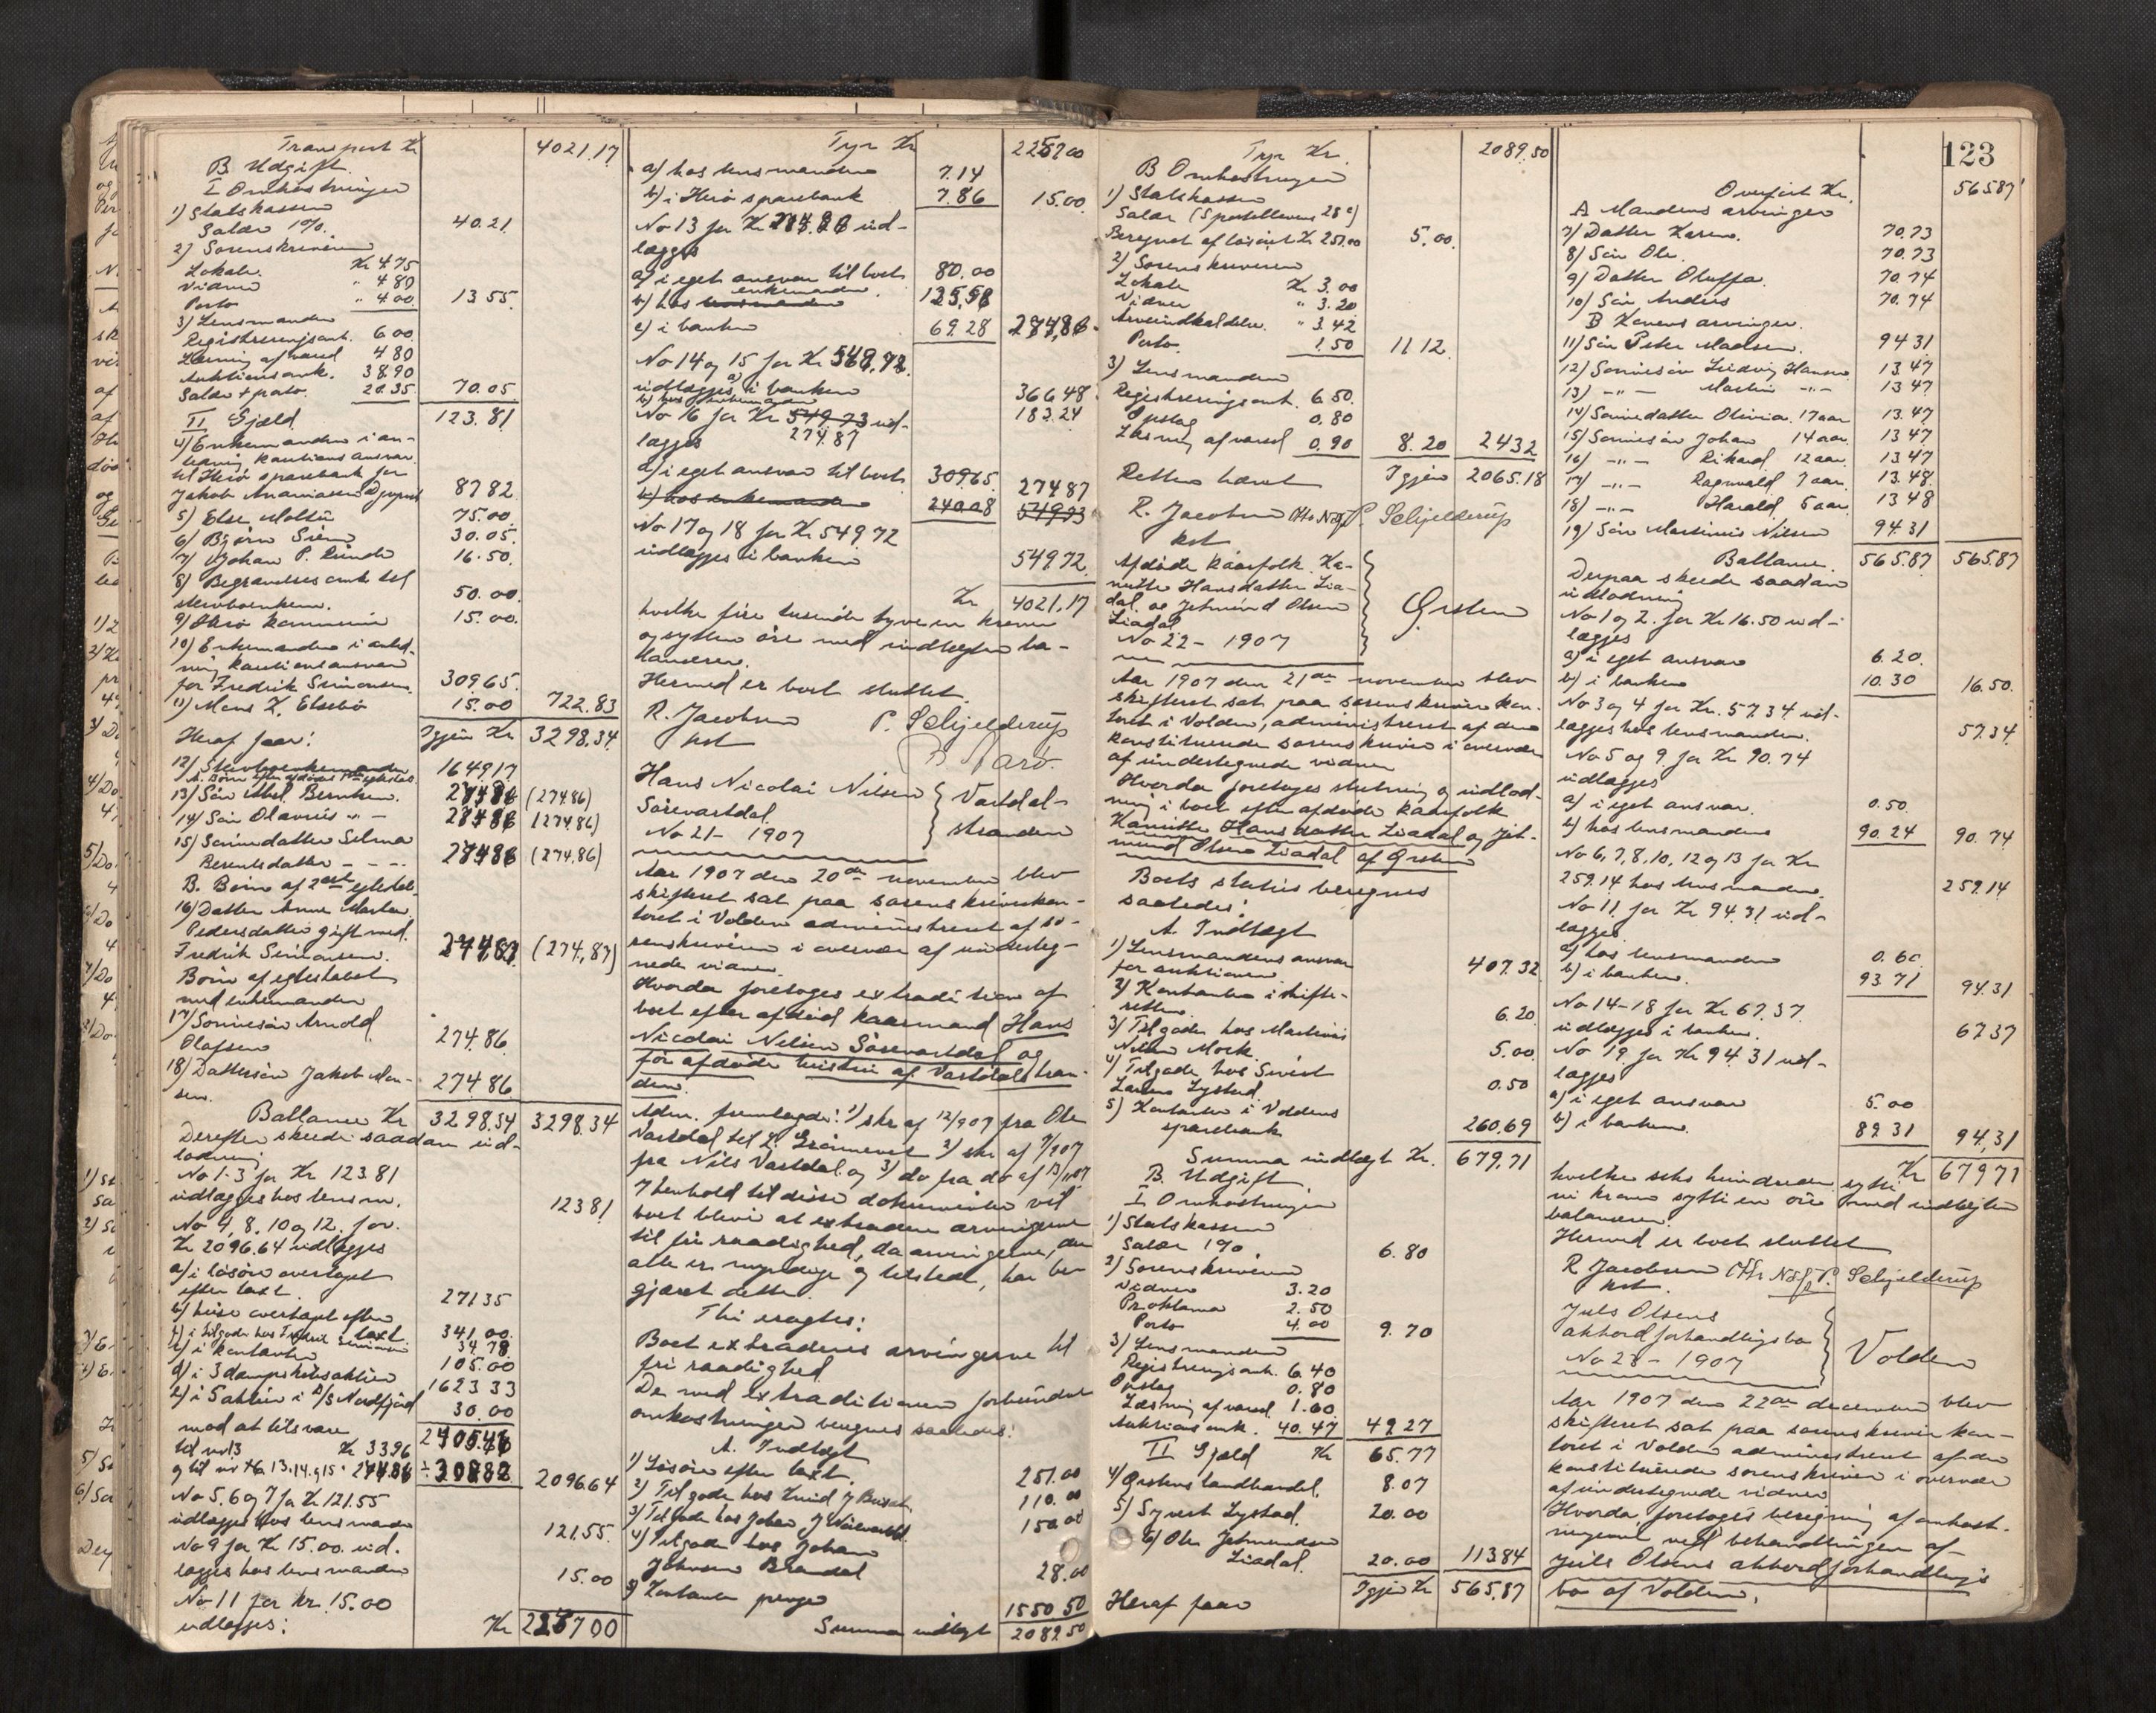 Transport Kr 4021.17
B Udgift.
I Omkostninger
1) Statskassen
Salær 1%. 40.21
2) Sorenskriveren
Lokale. Kr 4.75
Vidner " 4.80
Porto " 4.00 13.55
3) Lensmanden
Registreringsomk. 6.00
Læsning af varsel 4.80
Auktionsomk. 38.90
Salær + porto 20.35 70.05
II Gjæld 123.81
4) Enkemanden i an-
ledning kautionsansvar
til Herö sparebank for
Jakob Ananiassen 87.82
5) Else Moltu 75.00
6) Björn 30.05
7) Johan P. Runde 16.50
8) Begravelsesomk. til
50.00
9) Herö kommune 15.00
10) Enkemanden i anled-
ning kautionsansvar
for Fredrik Simonsen 309.65
11) Mons K. 15.00 722.83
Igjen Kr 3298.34
Heraf faar:
12) Stervboenkemanden 1649.17
13) Sön Berntsen. 274.86 (274.86)
14) Sön Olavus -"- 274.86 (274.86)
15) Sönnedatter Selma
Berentsdatter - - - 274.86 (274.86)
B. Börn af 2det egteskab
16) Datter Anne Marta
Pedersdatter gift med
Fredrik Simonsen. 274.87 (274.87)
Börn af egteskabet
med enkemanden
17) Sönnesön Arnold
Olafsen 274.86
18) Dattersön Jakob Mon-
sen. 274.86
Ballance Kr 3298.34 3298.34
Derefter skede saadan ud-
lodning
No 1-3 for Kr 123.81
udlægges hos lensm. 123.81
No 4, 8, 10 og 12 for
Kr 2096.64 udlægges
a) i lösöre overtaget
efter taxt. 271.35
b) huse overtaget efter
taxt. 341.00
i tilgode hos Fredrik Simonsen 34.78
c) i kontanter 105.00
d) i 3 dampskibsaktier 1623.33
e) i 5 aktier i D/S Nordfjord 30.00
mod at tilsvare 2405.46
til no 3 Kr 33.96
274.86 ÷ 308.82 2096.64
No 5, 6 og 7 for Kr 121.55
udlægges hos lensmanden 121.55
No 9 for Kr 15.00 ud-
lægges hos lensmanden 15.00
No 11 for Kr. 15.00
udlægges: Kr 2257.00
Tr Kr 2257.00
a) hos lensmanden 7.14
b) i Herö sparebank 7.86 15.00
No 13 for Kr 274.86 ud-
lægges
a) i eget ansvar til boet 80.00
b) hos enkemanden 125.58
c) i banken 69.28 274.86
No 14 og 15 for Kr 549.72
udlægges a) i banken 366.48
b) hos enkemanden 183.24
No 16 for Kr 549.73 ud-
lægges 274.87
a) i eget ansvar til boet 309.65 274.87
b) hos enkemanden 240.08 549.73
No 17 og 18 for Kr 549.72
udlægges i banken 549.72
Kr 4021.17
hvilke fire tusende tyve en kroner
og sytten öre med indtægten ba-
lancerer.
Hermed er boet sluttet
R. Jacobsen P. Schjelderup
kst
Hans Nicolai Nilsen
Sörevartdal.
No 21- 1907
Vartdal-
stranden
Aar 1907 den 20de november blev
skifteret sat paa sorenskriverkon-
toret i Volden administreret af so-
renskriveren i overvær af underteg-
nede vidner.
Hvorda foretoges extradition af
boet efter afdöd kaarmand Hans
Nicolai Nilsen Sörevartdal og
för afdöde hustru af Vartdalstran-
den
Adm. fremlagde: 1) skr. af 12/9 07 fra Ole
Vartdal til 2) skr af 7/9 07
fra Nils Vartdal og 3) do fra do af 13/11 07
I henhold til disse dokumenter vil
boet blive at extradere arvingerne
til fri raadighed, da arvingerne, der
alle er myndige og tilstede, har be-
gjæret dette
Thi eragtes:
Boet extraderes arvingerne til
fri raadighed
De med extraditionen forbundne
omkostninger beregnes saaledes:
A. Indtægt
1) Lösöre efter taxt. 251.00
2) Tilgode hos Knud J 110.00
3) Tilgode hos Johan J 150.00
4) Tilgode hos Johan
Johnsen Brandal 28.00
5) Kontante penge 1550.50
Summa indtægt 2089.50
Tr Kr. 2089.50
B Omkostninger
1) Statskassen
Salær (Sportellovens 28 c)
Beregnet af lösöret Kr 251.00 5.00
2) Sorenskriveren
Lokale Kr. 3.00
Vidner " 3.20
Arveindkaldelse. " 3.42
Porto. 1.50 11.12
3) Lensmanden
Registreringsomk. 6.50
Opslag 0.80
Læsning af varsel 0.90 8.20 24.32
Igjen 2065.18
Retten hævet
R. Jacobsen P. Schjelderup
kst
Afdöde kaarfolk Ka-
nutte Hansdatter Lia-
dal og Jetmund Olsen
Liadal
No 22- 1907
Örsten
Aar 1907 den 21de november blev
skifteret sat paa sorenskriverkon-
toret i Volden, administreret af den
konstituerede sorenskriver i overvær
af undertegnede vidner
Hvorda foretoges slutning og udlod-
ning i boet efter afdöde kaarfolk
Kanutte Hansdatter Liadal og Jet-
mund Olsen Liadal af Örsten
Boets status beregnes
saaledes:
A. Indtægt
1) Lensmandens ansvar
for auktionen 407.32
2) Kontanter i skifte-
retten 6.20
3) Tilgode hos Martinus
Nilsen Mork 5.00
4) Tilgode hos Sivert
Larsen Lystad 0.50
5) Kontanter i Voldens
sparebank 260.69
Summa indtægt Kr. 679.71
B. Udgift
I Omkostninger
1) Statskassen
Salær 1%. 6.80
2) Sorenskriveren
Vidner 3.20
Proklama 2.50
Porto 4.00 9.70
3) Lensmanden
Registreringsomk. 6.40
Opslag 0.80
Læsning af varsel 1.60
Auktionsomk. 40.47 49.27
II Gjæld Kr 65.77
4) Örstens landhandel. 8.07
5) Syvert Lystad. 20.00
6) Ole Jetmundsen
Liadal. 20.00 113.84
Igjen Kr 565.87
Heraf faar
123
Overfört Kr. 565.87
A Mandens arvinger
7) Datter Karen. 70.73
8) Sön Ole. 70.73
9) Datter Oluffa. 70.74
10) Sön Anders 70.74
B Konens arvinger.
11) Sön Peter Madsen. 94.31
12) Sönnesön Ludvig Hansen 13.47
13) -"- Martin -"- 13.47
14) Sönnedatter Olivia 17 aar 13.47
15) Sönnesön Johan 14 aar 13.47
16) -"- Rikard 12 aar 13.47
17) -"- Ragnvald 7 aar 13.48
18) -"- Harald 5 aar 13.48
19) Sön Martinus Nilsen 94.31
Ballance. 565.87 565.87
Derpaa skede saadan
udlodning
No 1 og 2 for Kr 16.50 ud-
lægges
a) i eget ansvar 6.20
b) i banken 10.30 16.50
No 3 og 4 for Kr. 57.34 ud-
lægges hos lensmanden. 57.34
No 5 og 9 for Kr 90.74
udlægges
a) i eget ansvar. 0.50
b) hos lensmanden 90.24 90.74
No 6, 7, 8, 10, 12 og 13 for Kr
259.14 hos lensmanden 259.14
No 11 for Kr 94.31 ud-
lægges
a) hos lensmanden 0.60
b) i banken. 93.71 94.31
No 14-18 for Kr 67.37
udlægges i banken. 67.37
No 19 for Kr 94.31 ud-
lægges
a) i eget ansvar 5.00
b) i banken. 89.31 94.31
Kr 679.71
hvilke seks hundrede sytti
ni kroner sytti en öre med indtægten
balancerer.
Hermed er boet sluttet
R. Jacobsen P. Schjelderup
kst.
Juls Olsens
akkordforhandlingsbo
No 23- 1907
Volden
Aar 1907 den 22de december blev
skifteret sat paa sorenskriverkon-
toret i Volden administreret af den
konstituerede sorenskriver i overvær
af undertegnede vidner
Hvorda foretoges beregning af omkost-
ningerne ved behandlingen af
Juls Olsens akkordforhandlings
bo af Volden.